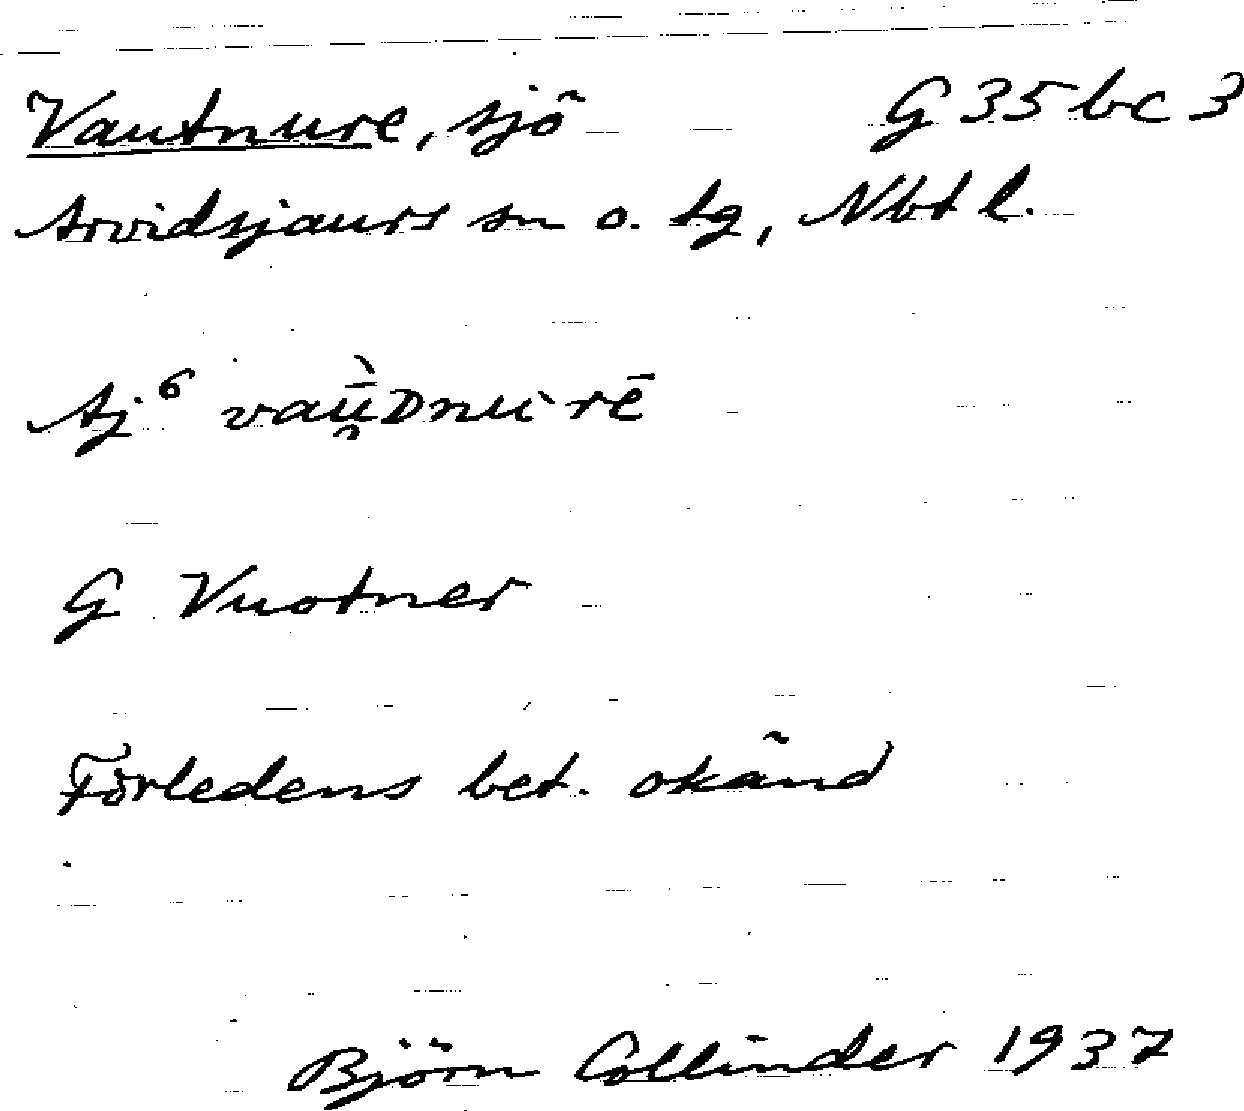 Vautnure, sjö G 35 bc 3
Arvidsjaurs sn o. tg, Nbt l.
Aj⁶ vaụ̄̀Dnùrē
G Vuotner
Förledens bet. okänd
Björn Collinder 1937